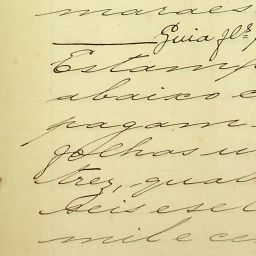 maraes
Guia fls
Estamp
abaixo e
pagam
folhas u
trez, quat
seis e set
mil e cen